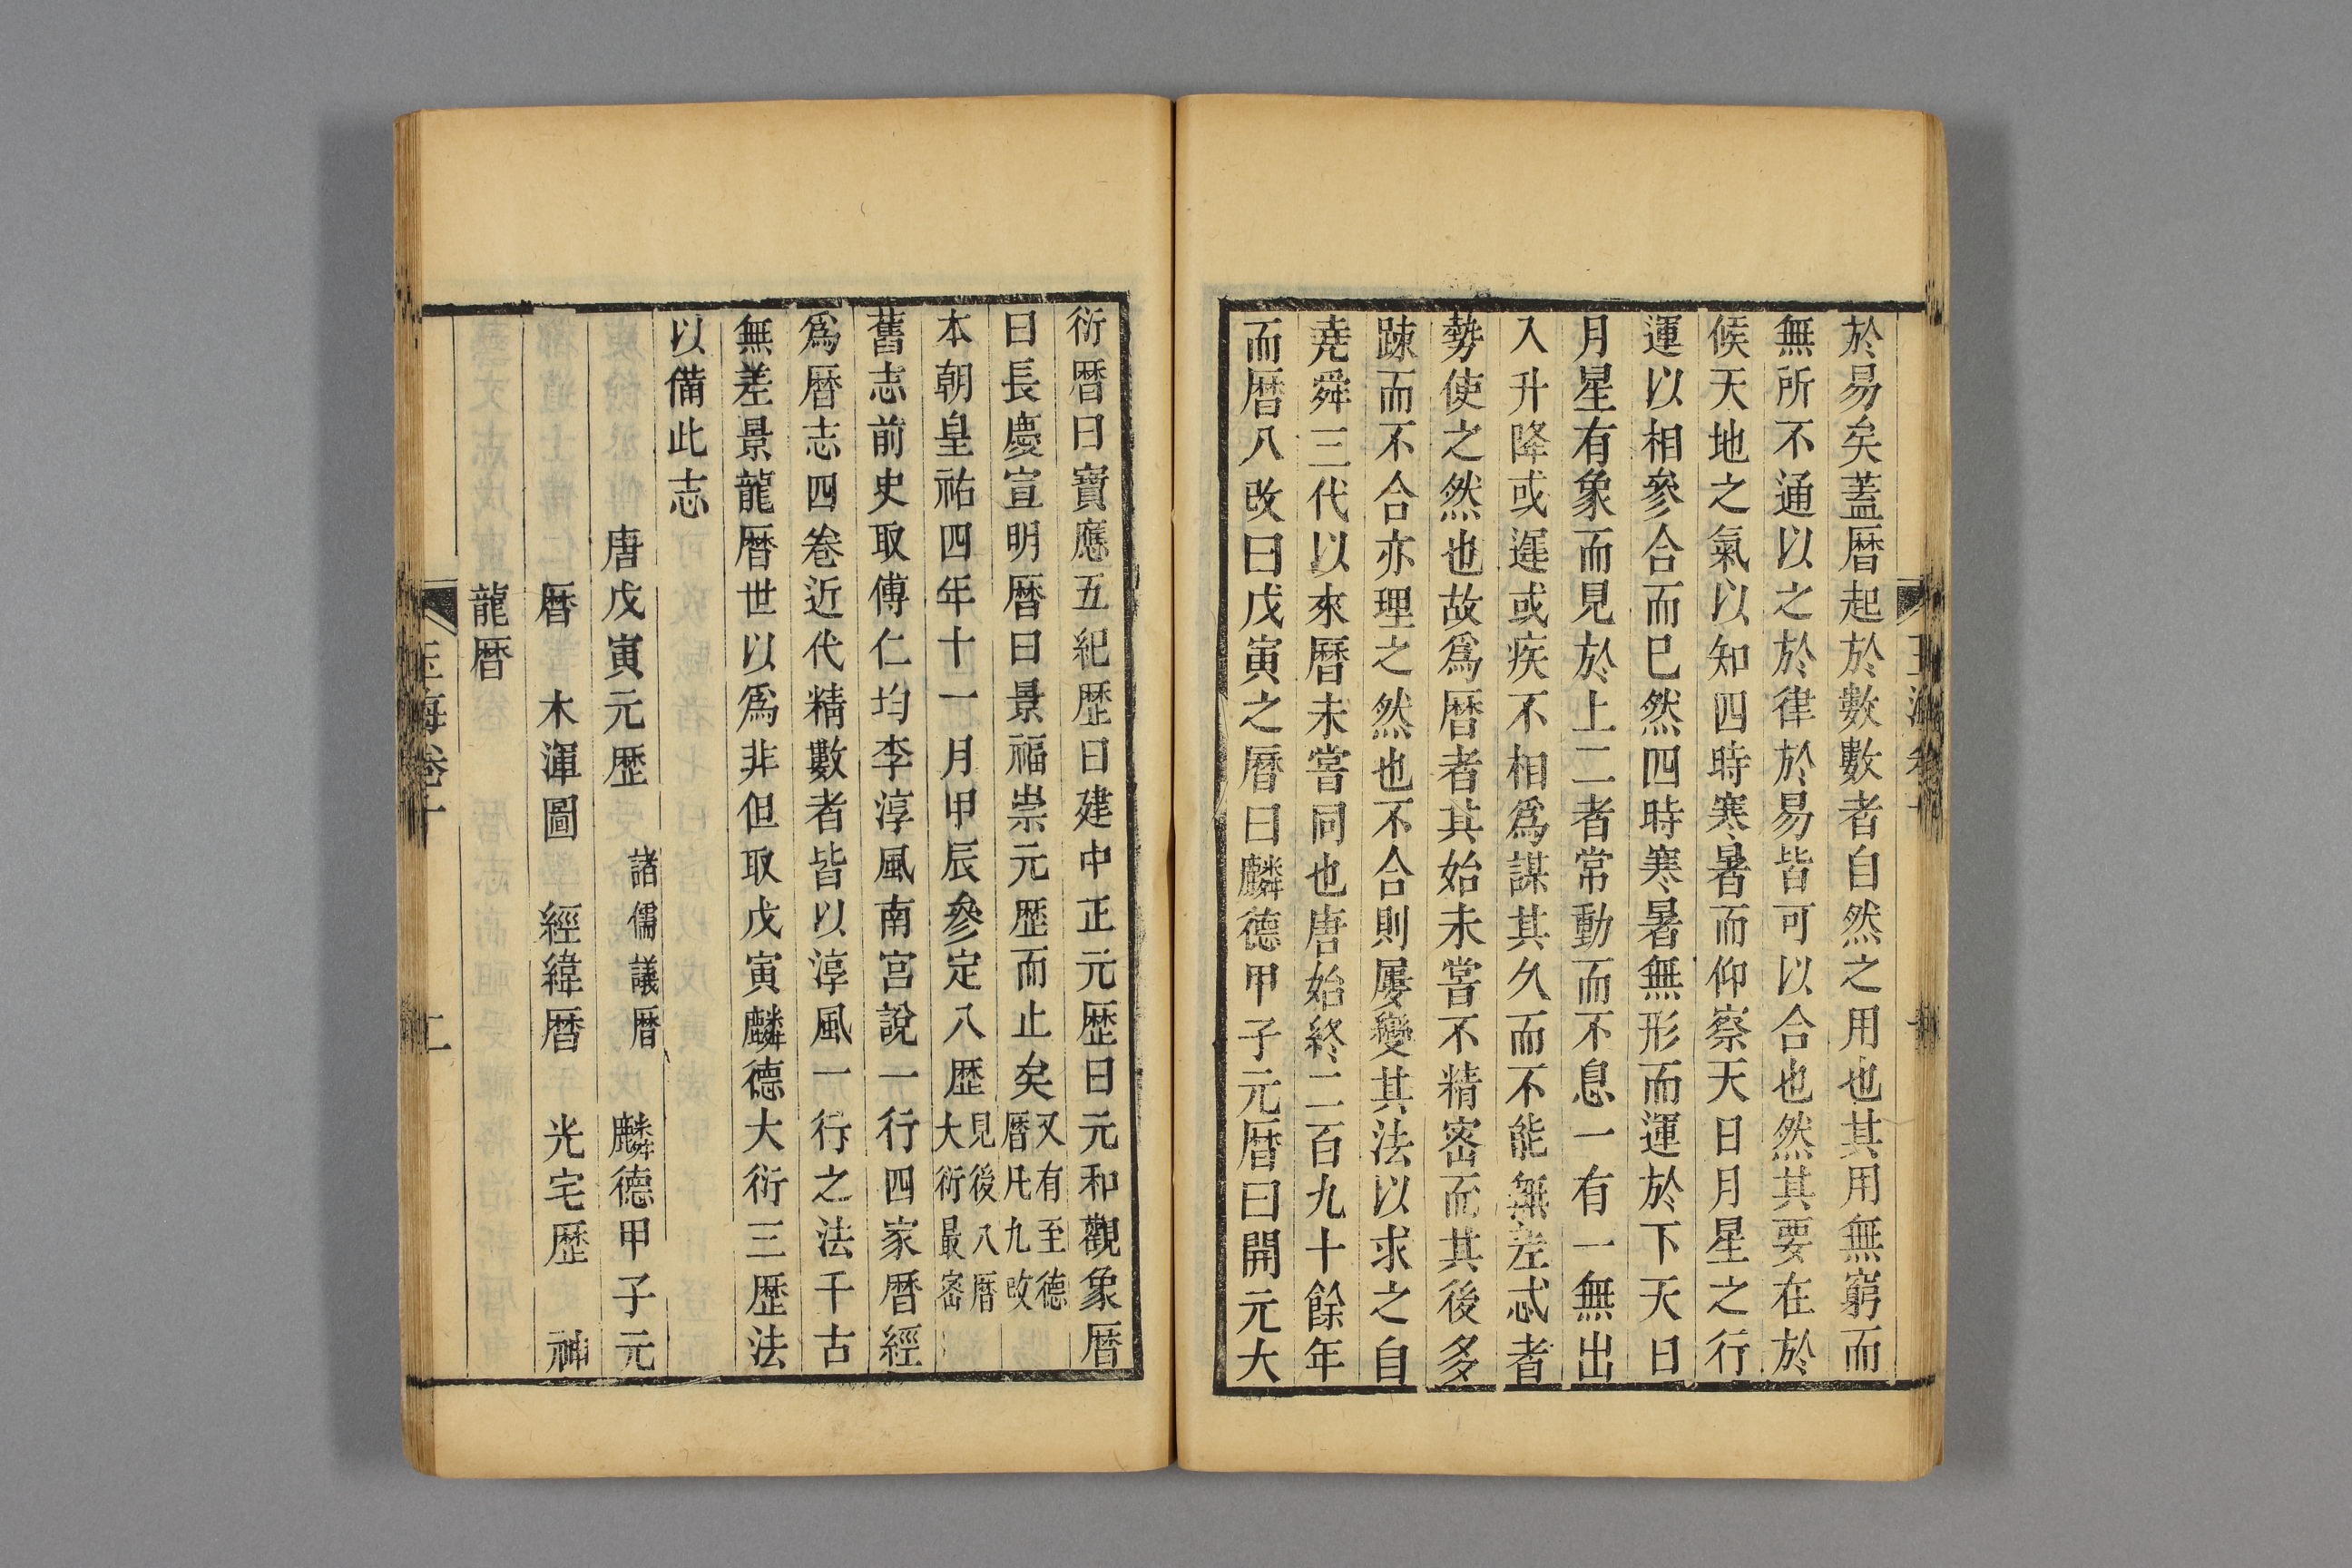 於易矣蓋曆起於數數者自然之用也其用無窮而
無所不通以之於律於易皆可以合也然其要在於
候天地之氣以知四時寒暑而仰察天日月星之行
運以相參合而已然四時寒暑無形而運於下天日
月星有象而見於上二者常動而不息一有一無出
入升降或遲或疾不相爲謀其久而不能無差忒者
勢使之然也故爲曆者其始未嘗不精密而其後多
疎而不合亦理之然也不合則屢變其法以求之自
堯舜三代以來曆未嘗同也唐始終二百九十餘年
而曆八改曰戊寅之曆曰麟德甲子元曆曰開元大
衍曆曰寶應五紀歷曰建中正元歷曰元和觀象曆
曰長慶宣明曆曰景福崇元歷而止矣又有至德
曆凡九改
本朝皇祐四年十一月甲辰參定八歷見後八曆
大衍最密
舊志前史取傅仁均李淳風南宮說一行四家曆經
爲曆志四卷近代精數者皆以淳風一行之法千古
無差景龍曆世以爲非但取戊寅麟德大衍三歷法
以備此志
唐戊寅元歷 諸儒議曆 麟德甲子元
曆 木渾圖 經緯曆 光宅歷 神
龍曆
玉海卷十